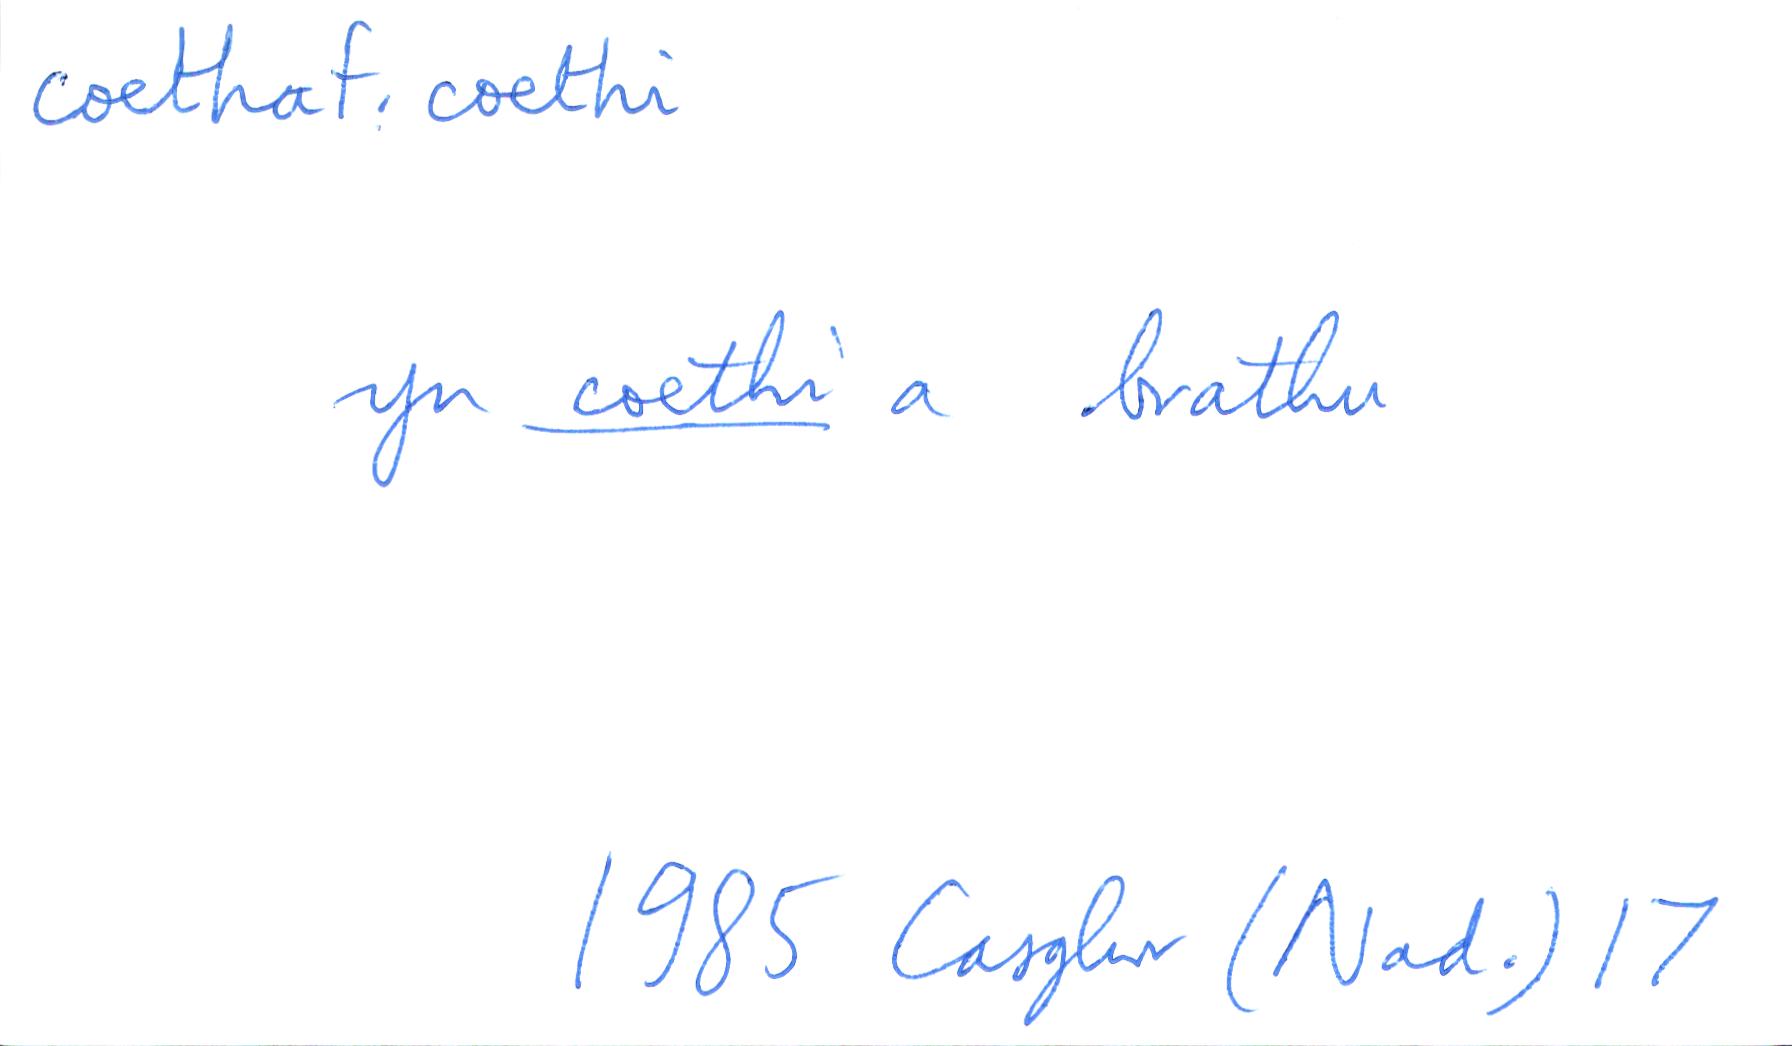 coethaf: coethi
yn coethi a brathu
1985 Casglwr (Nad.) 17